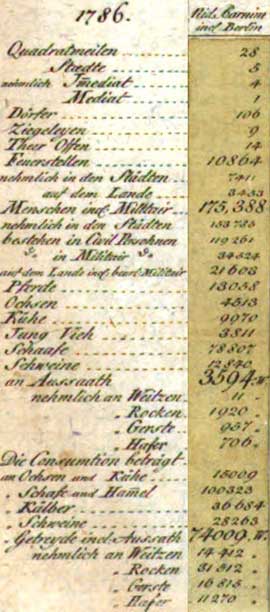 1786.
Nied. Barnim
incl. Berlin
Quadratmeilen 28
Staedte 5
nehmlich Imediat 4
Mediat 1
Dörfer 106
Ziegeleyen 9
Theer Ofen 14
Feuerstellen 10864
nehmlich in den Städten 7411
auf dem Lande 3453
Menschen incl. Militair 175,388
nehmlich in den Städten 153785
bestehen in Civil Persohnen 119261
in Militair 34524
auf dem Lande incl. beurl. Militair 21603
Pferde 13058
Ochsen 4513
Kühe 9970
Jung Vieh 3811
Schaafe 78807
Schweine 12840
an Aussaath 3594. W.
nehmlich an Weitzen 11
" Rocken 1920
" Gerste 957
" Hafer 706
Die Consumtion beträgt
an Ochsen und Kühe 15009
" Schafe und Hamel 100323
" Kälber 36684
" Schweine 28263
" Getreyde incl. Aussath 74009. W.
nehmlich an Weitzen 14412
" Rocken 31512
" Gerste 16815
" Hafer 11270